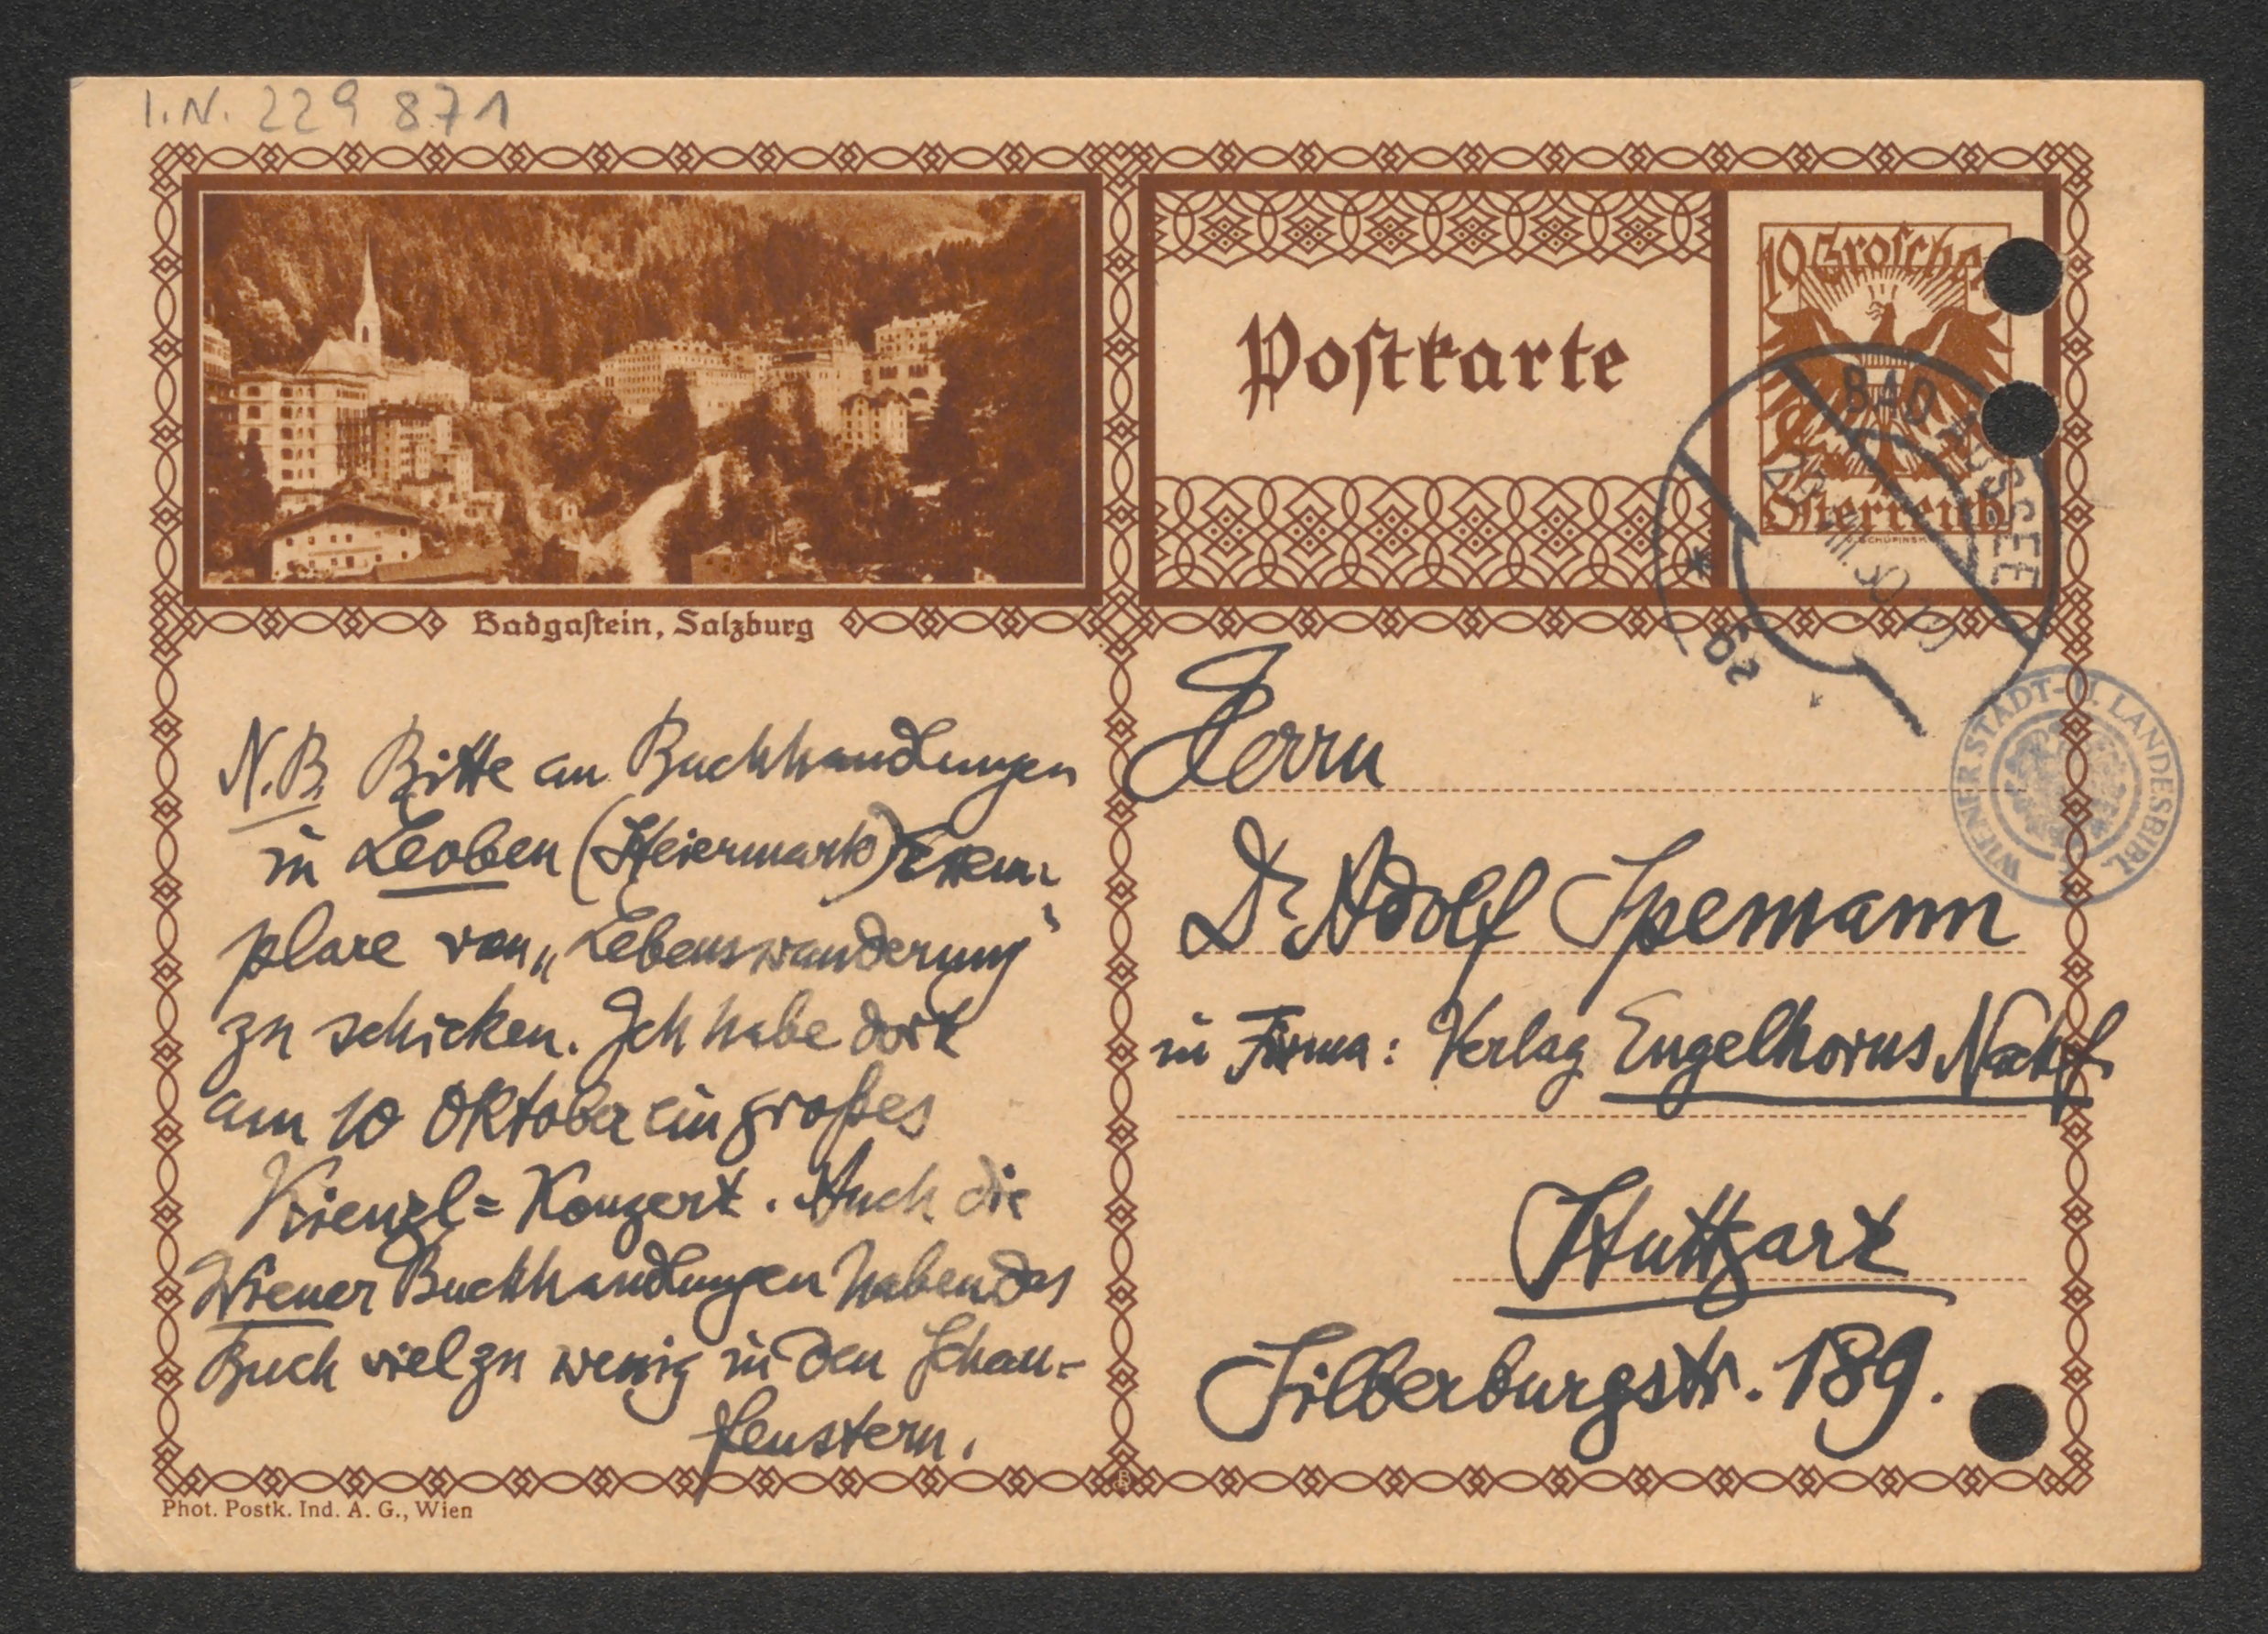 I.N. 229 871
Badgastein, Salzburg
N.B. Bitte an Buchhandlungen
in Leoben (Steiermark) Exem-
plare von „Lebenswanderung“
zu schicken. Ich habe dort
am 10 Oktober ein großes
Kienzl=Konzert. Auch die
Wiener Buchhandlungen haben das
Buch viel zu wenig in den Schau-
fenstern.
Phot. Postk. Ind. A. G., Wien
Postkarte
10 Grosche
Österreich
BAD AUSSEE
WIENER STADT- U. LANDESBIBL.
Herrn
Dr Adolf Spemann
in Firma: Verlag Engelhorns Nachf
Stuttgart
Silberburgstr. 189.